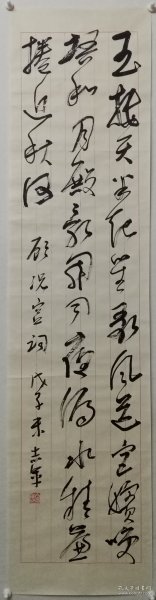 玉楼天半起笙歌风送宫嫔笑
语和月殿影开闻夜漏水精帘
捲近秋河 顾况宫词 戊子